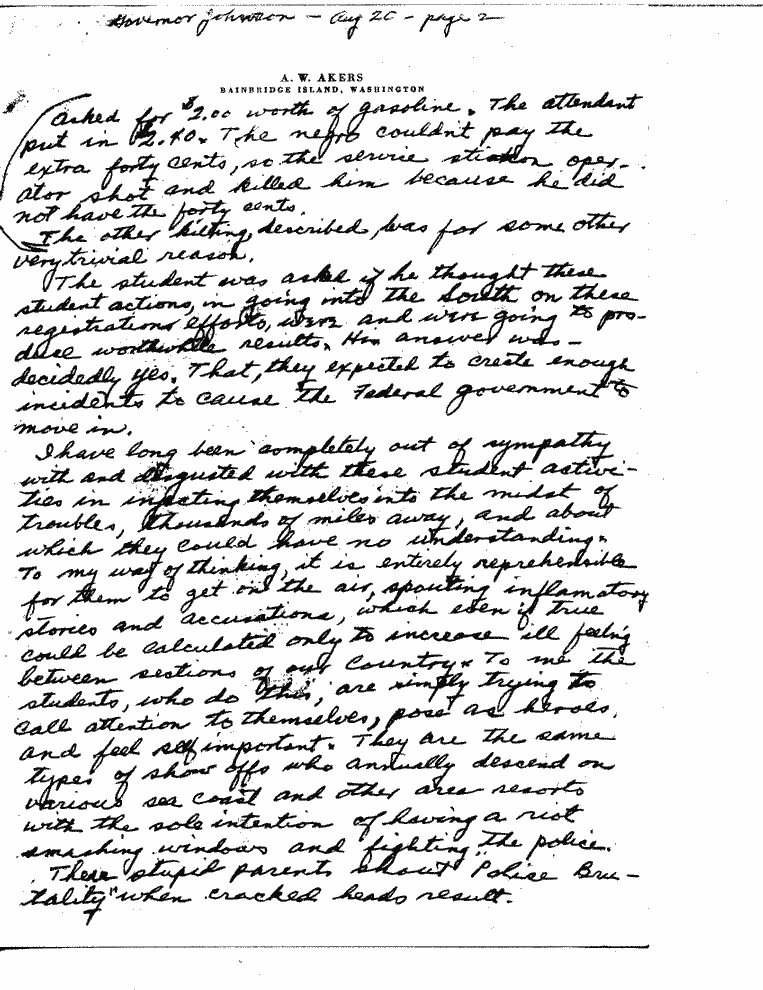 Governor Johnson - Aug 20 - page 2
A. W. AKERS
BAINBRIDGE ISLAND, WASHINGTON
asked for $2.00 worth of gasoline. The attendant
put in $2.40. The negro couldn't pay the
extra forty cents, so the service station oper-
ator shot and killed him because he did
not have the forty cents.
The other killing, described, was for some other
very trivial reason.
The student was asked if he thought these
student actions, in going into the South on these
registrations efforts, were and were going to pro-
duce worthwhile results. His answer was -
decidedly yes. That, they expected to create enough
incidents to cause the Federal government to
move in.
I have long been completely out of sympathy
with and disgusted with these student activi-
ties in injecting themselves into the midst of
troubles, thousands of miles away, and about
which they could have no understanding.
To my way of thinking, it is entirely reprehensible
for them to get on the air, spouting inflamatory
stories and accusations, which even if true
could be calculated only to increase ill feeling
between sections of our Country. To me the
students, who do this, are simply trying to
call attention to themselves, pose as heroes,
and feel self important. They are the same
types of show offs who annually descend on
various sea coast and other area resorts
with the sole intention of having a riot
smashing windows and fighting the police.
These stupid parents shout "Police Bru-
tality" when cracked heads result.